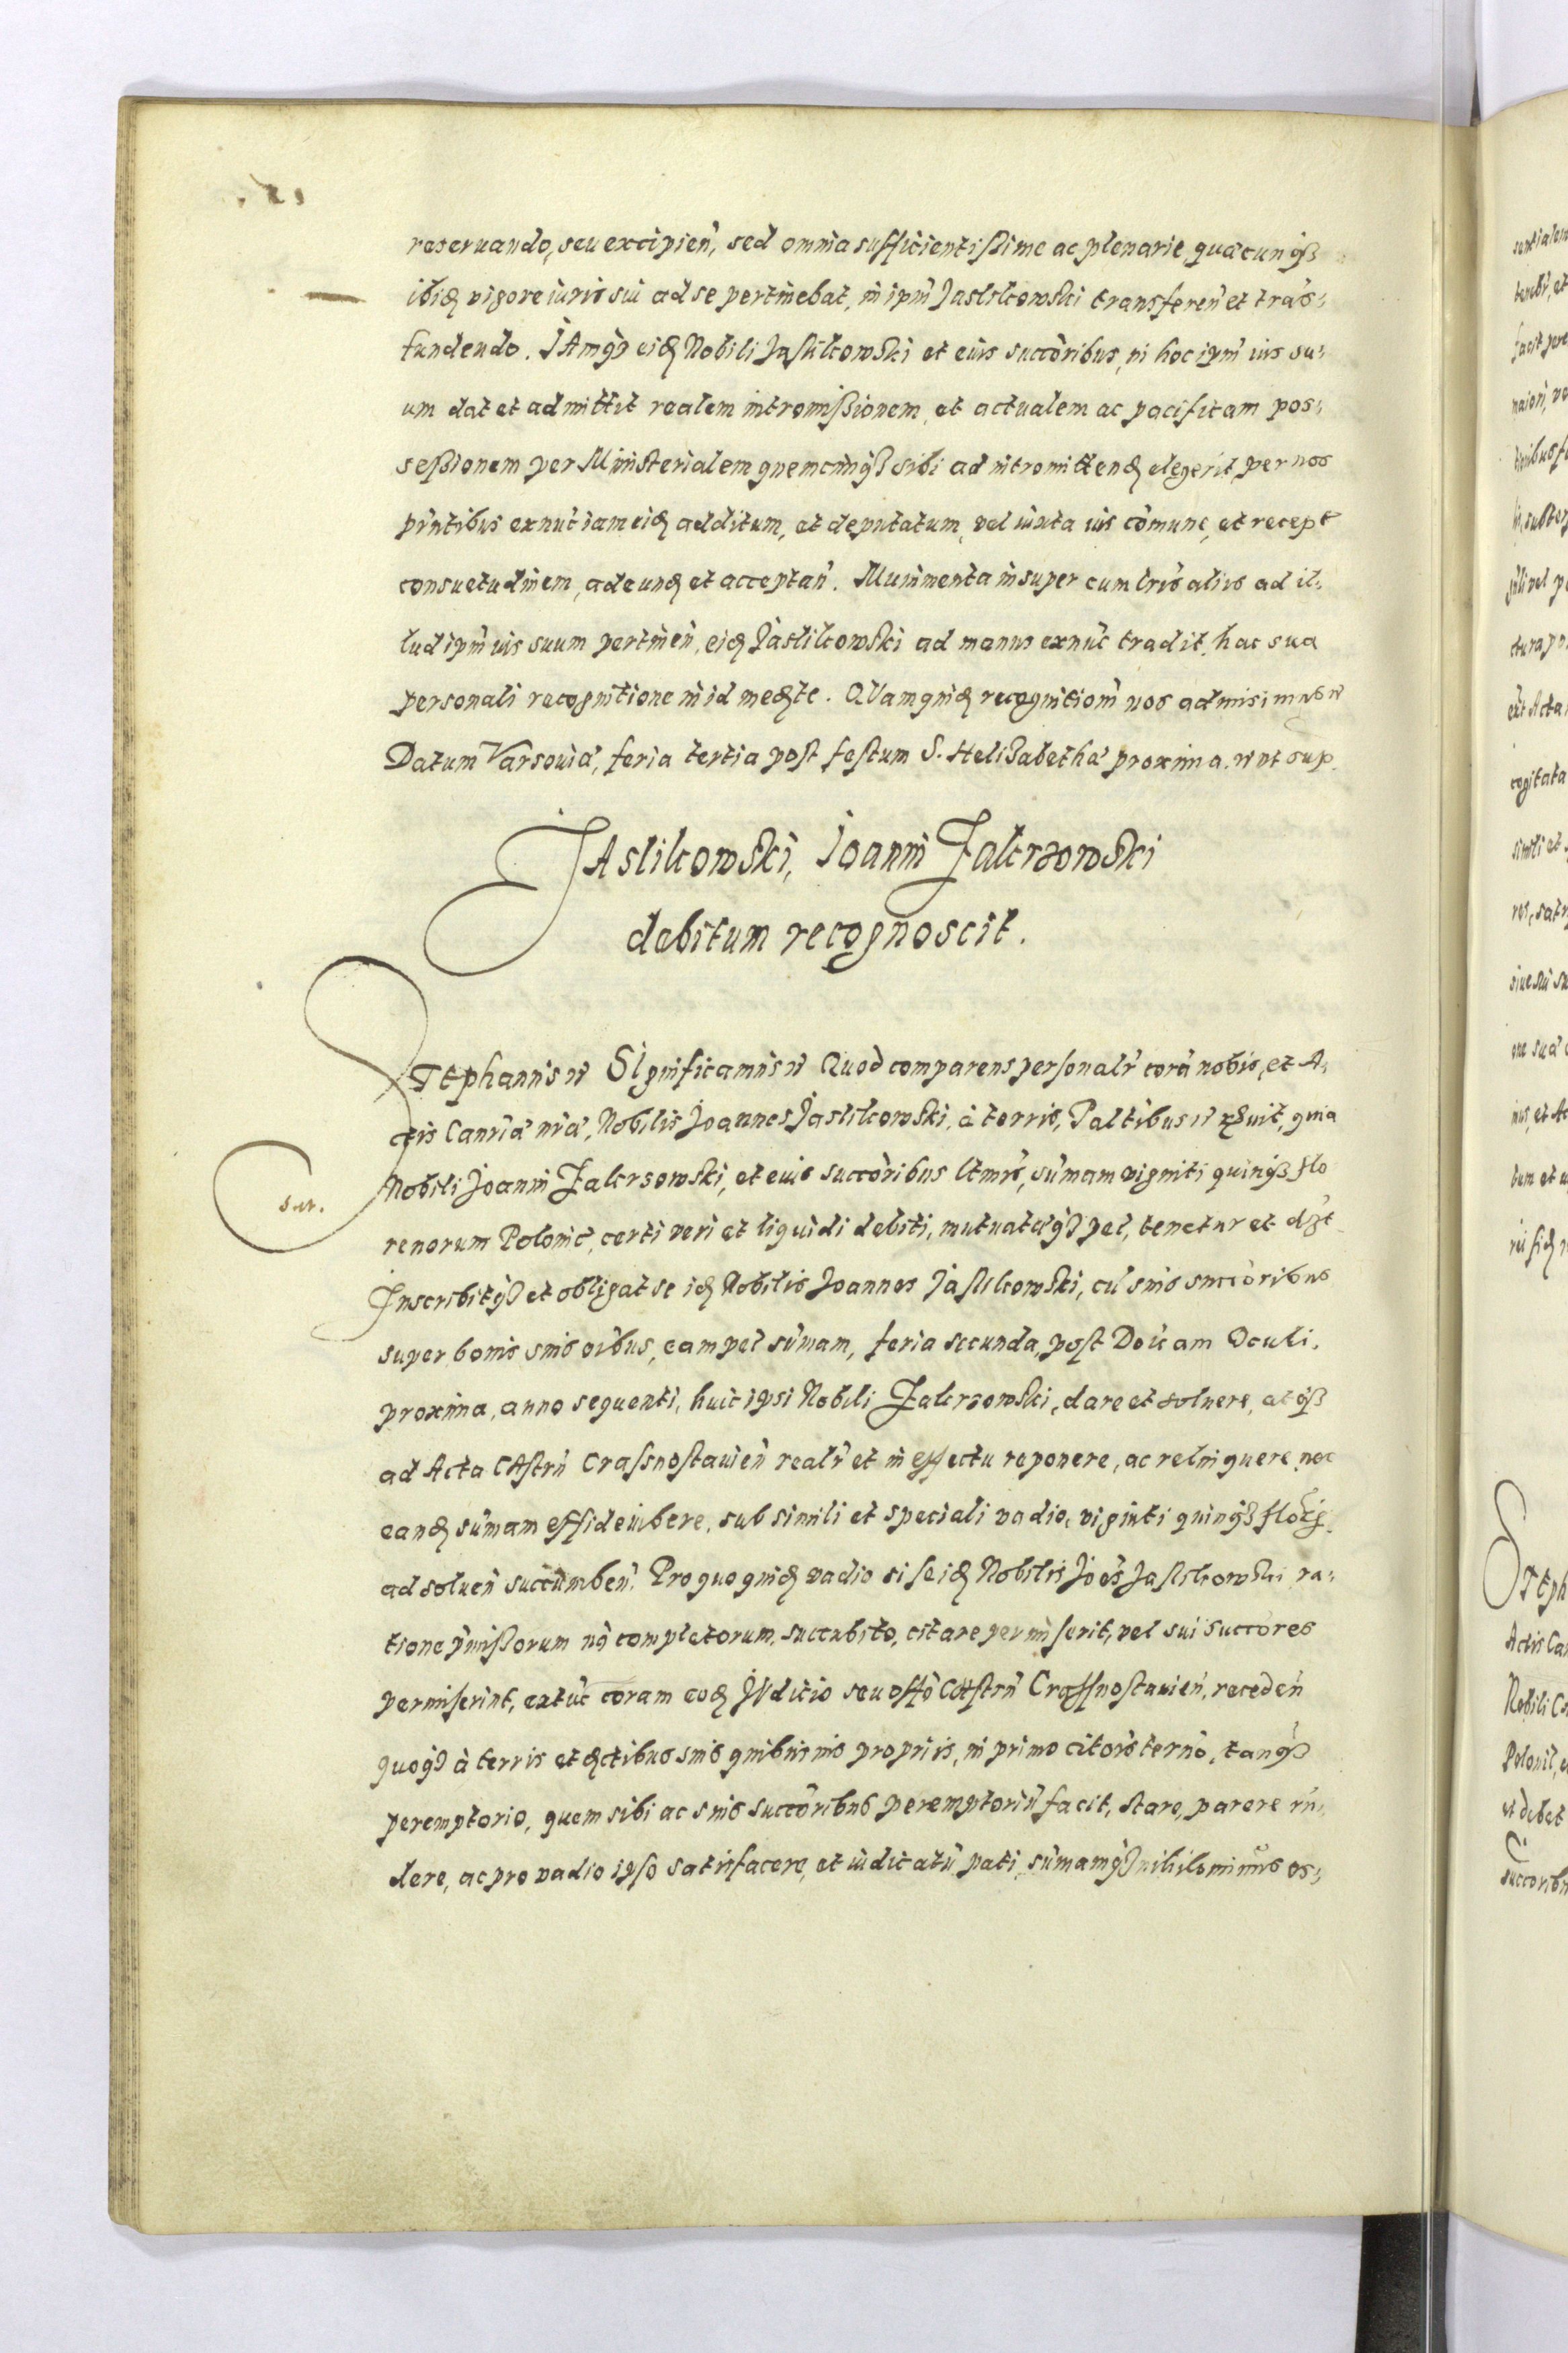 reseruando, seu excipien̄, sed omnia sufficientißime ac plenarie, quæcunqꝫ
ibidꝫ vigore iuris sui ad se pertinebat, in ipm̄ Jaslikowski transferen̄ et trās⸗
fundendo. JAmqꝫ eidꝫ Nobili Jaslikowski et eius succōribus, in hoc ipm̄ ius su⸗
um dat et admittit realem intromißionem, et actualem ac pacificam pos⸗
seßionem per Ministerialem quemcunqꝫ sibi ad intromittendꝫ elegerit, per nos
pn̄tibus exnūc iam eidꝫ additum, et deputatum, vel iuxta ius cōmune, et recept
consuetudinem, adeundꝫ et acceptan̄. Munimenta insuper cum lr̄is aliis ad il⸗
lud ipm̄ ius suum pertinen̄, eidꝫ Jaslikowski ad manus exnūc tradit, hac sua
personali recognitione in id medꝫte. QVamquidꝫ recognitiom̄ nos admisimus
Datum Varsouiæ, feria tertia post festum S. Helisabethæ proxima. ut sup.
JAslikowski, Joanni Zakrzowski
debitum recognoscit.
STephanus Significamus Quod comparens personalr̄ corā nobis, et A⸗
ctis Canr̄iæ nr̄æ, Nobilis Joannes Jaslikowski, à terris, Paltibus quia
Nobili Joanni Zakrsowski, et eius succōribus ltm̄is, sūmam viginti quinqꝫ flo
sur.
renorum Polonic̄, certi veri et liquidi debiti, mutuatæqꝫ pec̄, tenetur et
Inscribitqꝫ et obligat se idꝫ Nobilis Joannes Jaslikowski, cū suis succōribus
super bonis suis oībus, eam pec̄ sūmam, feria secunda, post Doīcam Oculi,
proxima, anno sequenti, huic ipsi Nobili Zakrzowski, dare et soluere, atqꝫ
ad Acta CAstrn̄ Crasnostauien̄ realr̄ et in effectu reponere, ac relinquere nec
eandꝫ sūmam
sub simili et speciali vadio, viginti quinqꝫ
ad soluen̄ succumben̄. Pro quo quidꝫ vadio si se idꝫ Nobilis Joēs Jaslikowski ra⸗
tione p̄mißorum nō completorum, succubito, citare permiserit, vel sui succōres
permiserint, extūc coram eodꝫ JVditio seu offō CAstrn̄ Crassnostauien̄, receden̄
quoqꝫ à terris et suis quibusuis propriis, in primo termō, tanqꝫ
peremptorio, quem sibi ac suis succōribus peremptoriū facit, stare, parere rn̄⸗
dere, ac pro vadio ipso satisfacere, et iudicatū pati, sūmamqꝫ nihilominus es⸗